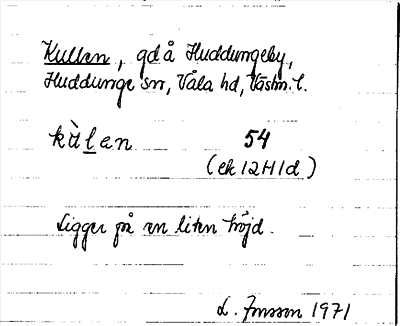 Kullen, gd å Huddungeby,
Huddunge sn, Våla hd, Västm. l.
kù̀len 54
(ek 12H1d)
Ligger på en liten höjd.
L. Jonsson 1971